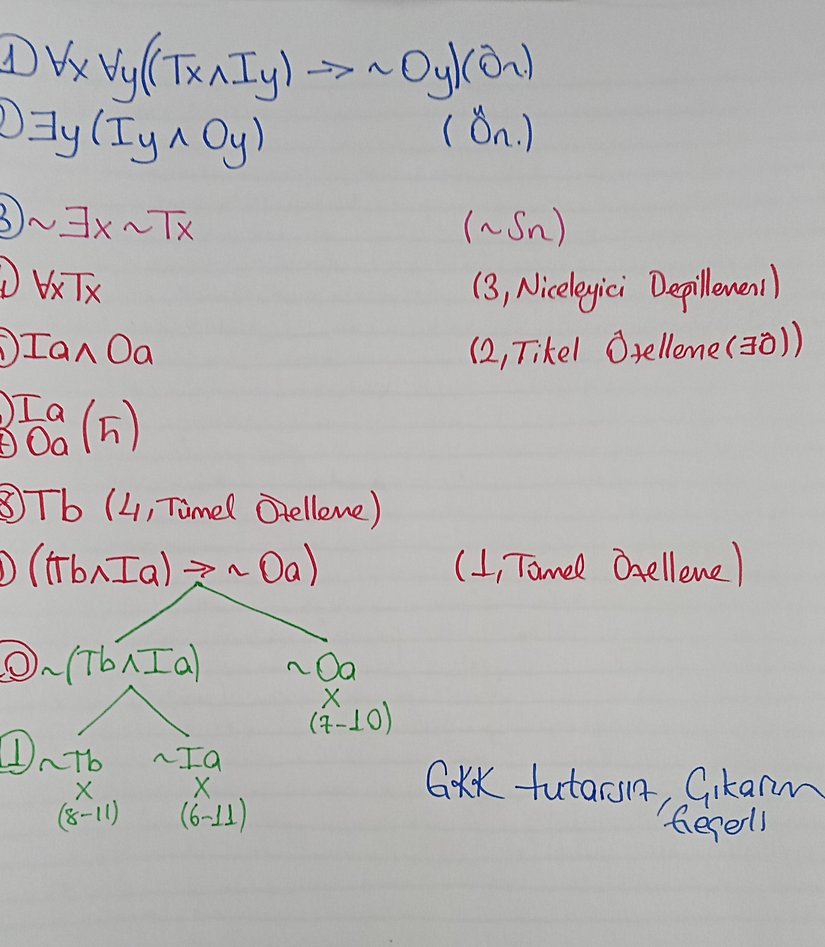 ① ∀x ∀y((Tx∧Iy) → ~Oy) (Ön.)
② ∃y(Iy ∧ Oy) (Ön.)
③ ~∃x ~Tx (~Sn)
④ ∀xTx (3, Niceleyici Değillemesi)
⑤ Ia ∧ Oa (2, Tikel Özelleme (∃Ö))
⑥ Ia
⑦ Oa (5)
⑧ Tb (4, Tümel Özelleme)
⑨ ((Tb∧Ia) → ~Oa) (1, Tümel Özelleme)
⑩ ~(Tb∧Ia) ~Oa
X
(7-10)
⑪ ~Tb ~Ia
X X
(8-11) (6-11)
GKK tutarsız, Çıkarım
Geçerli